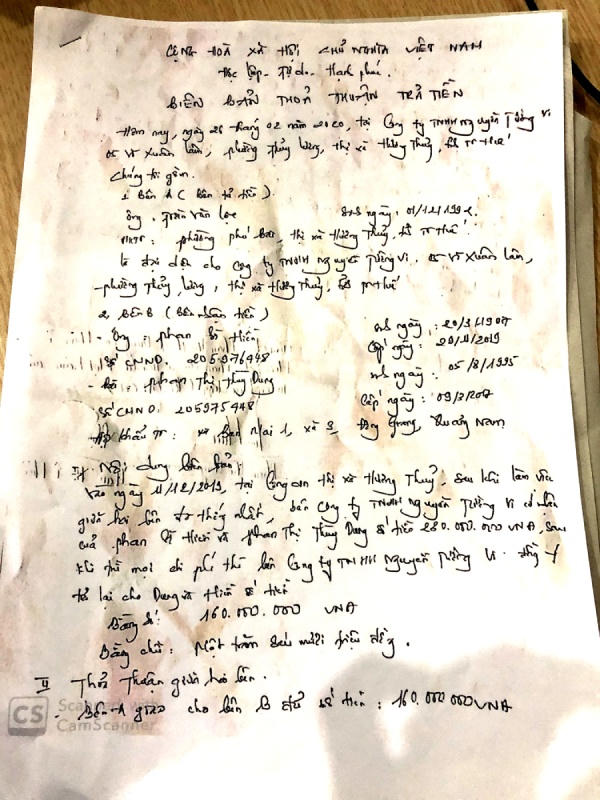 CỘNG HOÀ XÃ HỘI CHỦ NGHĨA VIỆT NAM
Độc lập - Tự do - Hạnh phúc.
BIÊN BẢN THOẢ THUẬN TRẢ TIỀN
Hôm nay, ngày 26 tháng 02 năm 2020, tại Công ty TNHH Nguyễn Tường Vi
05 Võ Xuân Lâm, phường Thủy Lương, thị xã Hương Thủy, tỉnh TT Huế
Chúng tôi gồm.
1. Bên A (bên trả tiền).
Ông: Trần Văn Lọc sinh ngày: 01/12/1992.
phường Phú Bài, thị xã Hương Thủy, tỉnh TT Huế.
là đại diện cho Công ty TNHH Nguyễn Tường Vi. 05 Võ Xuân Lâm,
- phường Thủy Lương, thị xã Hương Thủy, tỉnh TT Huế
2. Bên B (bên nhận tiền)
- Ông: Phan Sĩ Hiền sinh ngày: 20/3/1987
Số CMND. 205976448 Cấp ngày: 29/11/2019
- Bà: Phan Thị Thùy Dung sinh ngày: 05/8/1995
Số CMND. 205975448 Cấp ngày: 09/2/2017
Hộ khẩu TT: xã 3, Đông Giang, Quảng Nam
I, Nội dung biên bản:
Vào ngày 11/12/2019, tại Công an thị xã Hương Thủy, sau khi làm việc
giữa hai bên đã thống nhất, bên Công ty TNHH Nguyễn Tường Vi có nhận
của Phan Sĩ Hiền và Phan Thị Thùy Dung số tiền 280.000.000 VNĐ, sau
khi trừ mọi chi phí thì bên Công ty TNHH Nguyễn Tường Vi đồng ý
trả lại cho Dung và Hiền số tiền
Bằng số: 160.000.000 VNĐ
Bằng chữ: Một trăm sáu mươi triệu đồng.
II Thoả Thuận giữa hai bên.
- Bên A giao cho bên B đủ số tiền: 160.000.000 VNĐ
CS
Scanned with
CamScanner